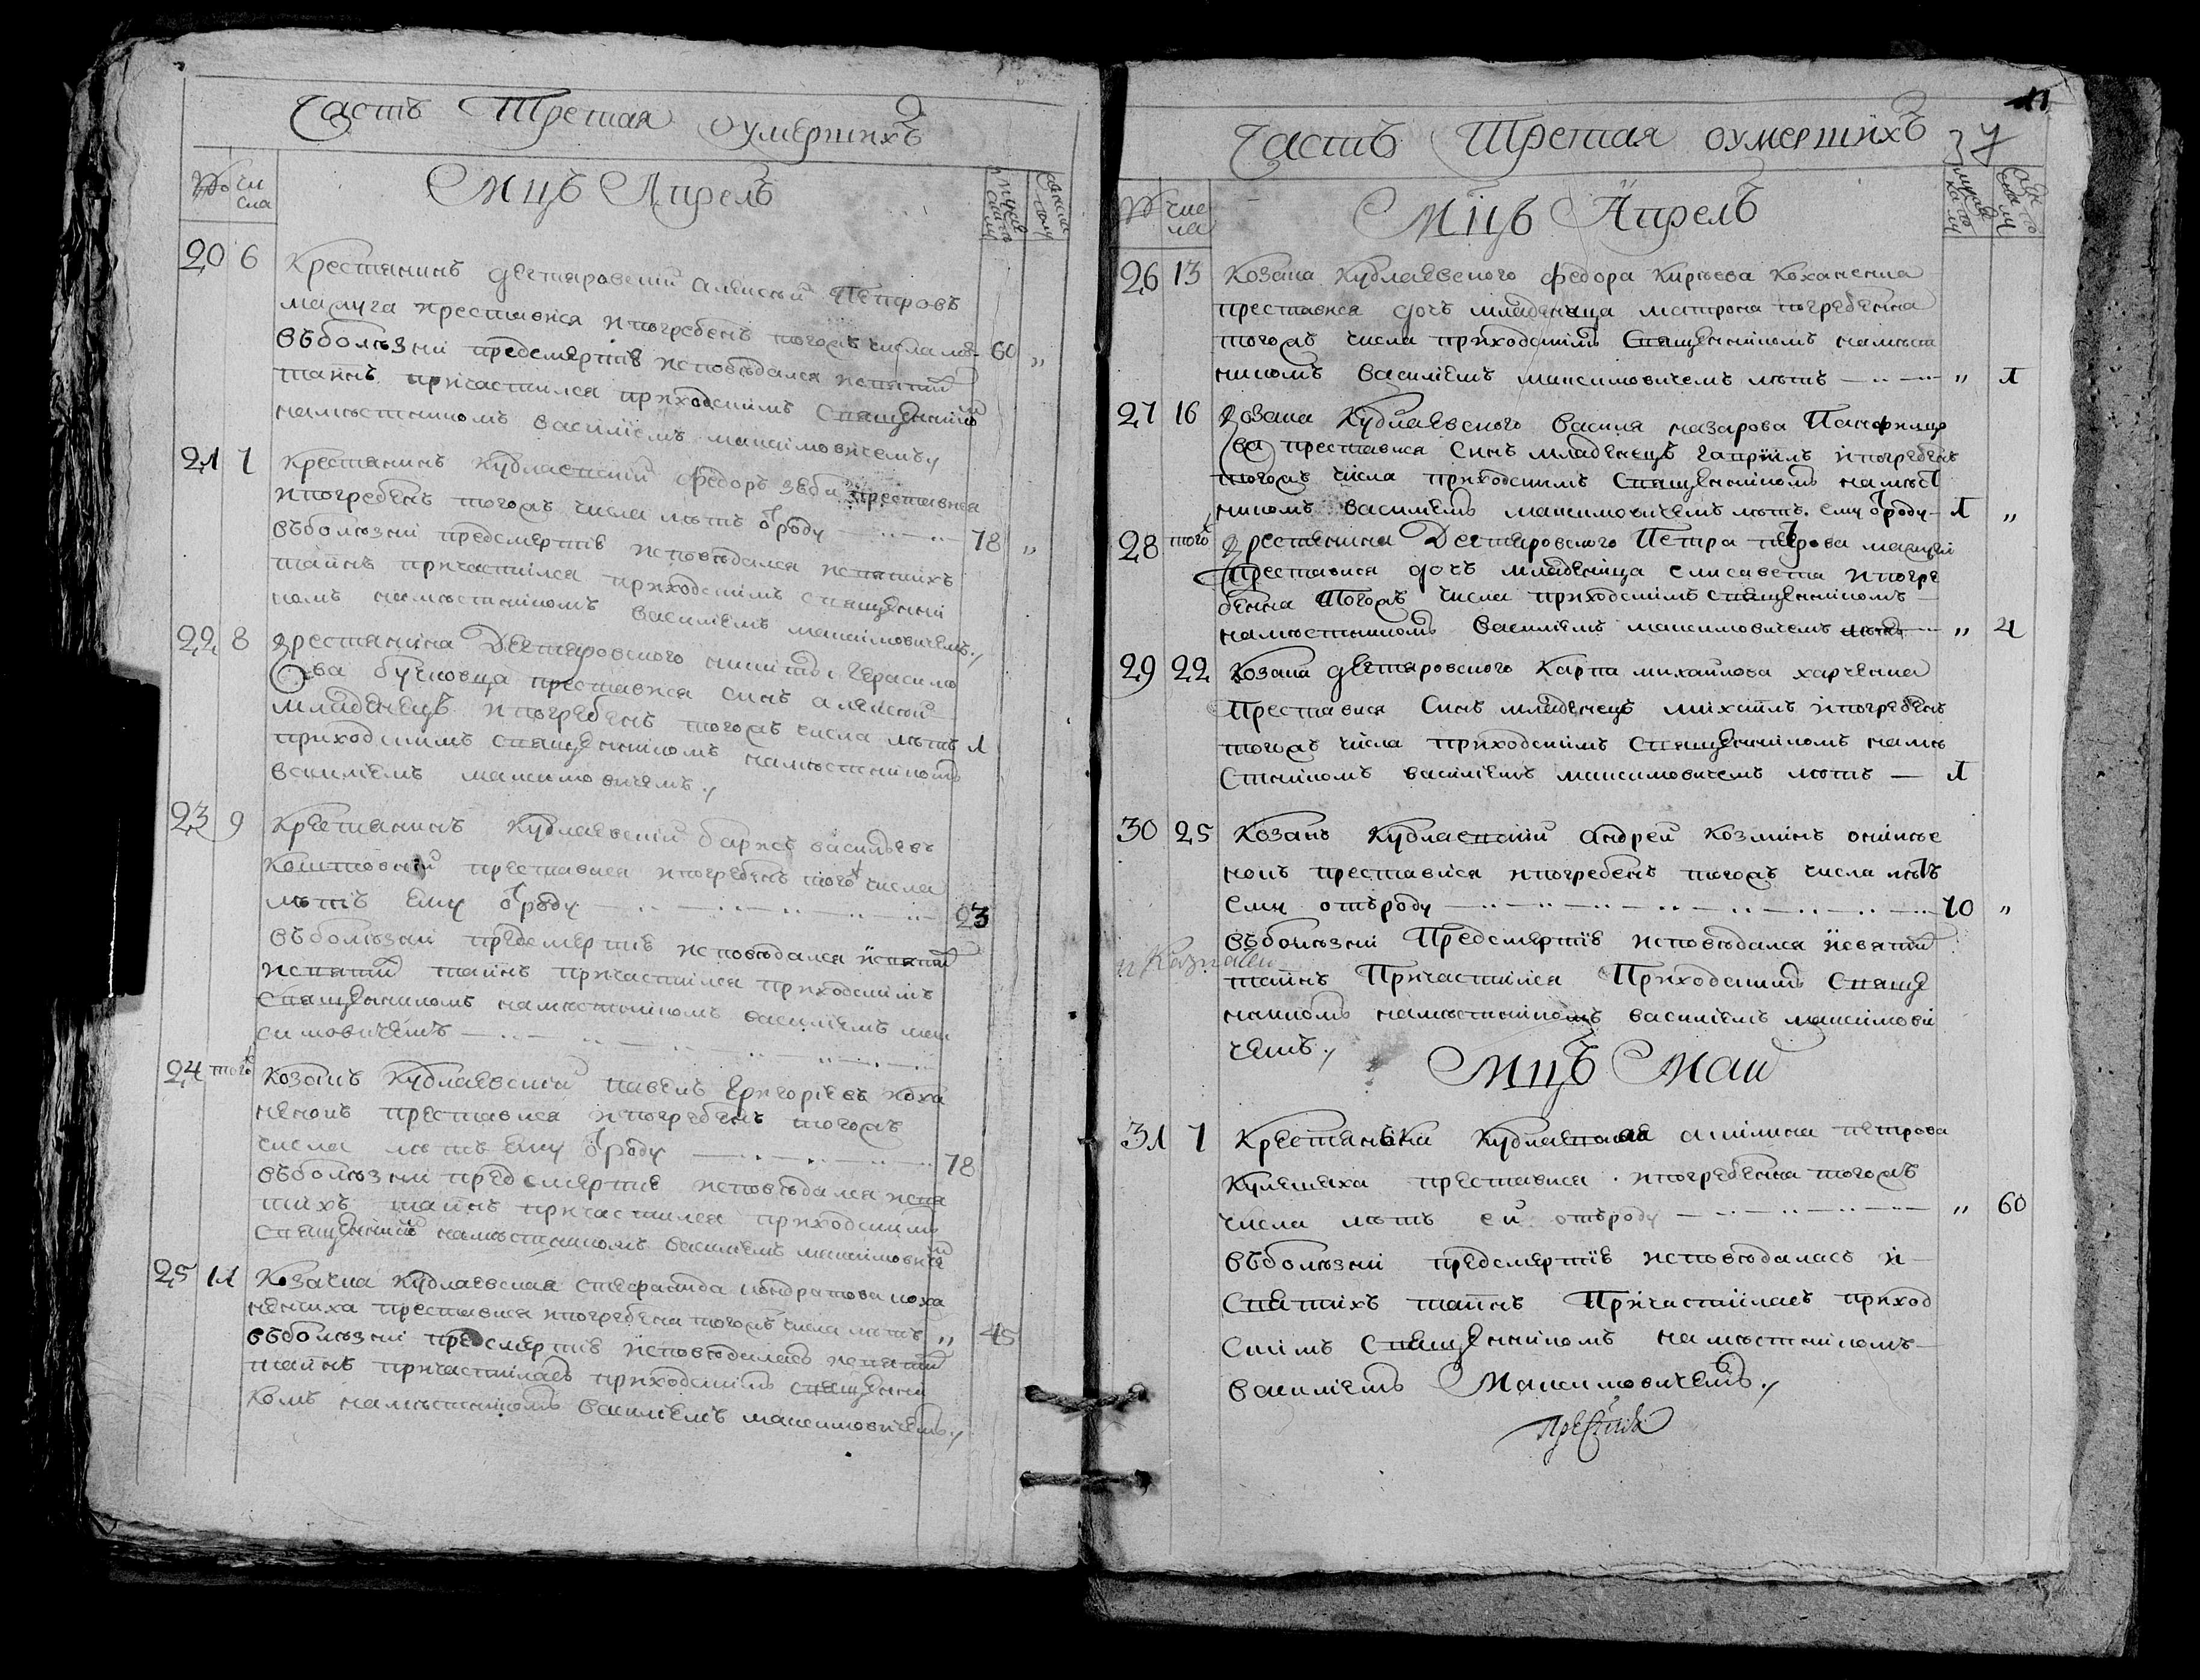 Часть Третая оумершихъ
№ числа Мцъ Апрель мужеска полу женска полу
20 6 Крестянинъ дегтяровскій алексѣй Петровъ
преставися и погребенъ тогожъ числа лѣт 60 „
Въболѣзни предсмертіе исповѣдался и святих
таинъ причастился приходскимъ Священнико
намѣстникомъ Василіемъ максимовичемъ
21 7 Крестянинъ кублаевскій федоръ преставися
и погребенъ тогожъ числа лѣтъ от роду 78 „
въболѣзни предсмертіе исповѣдался и святихъ
таинъ причастился приходскимъ священни
комъ намѣстникомъ Василіемъ максимовичемъ
22 8 Крестянина Дегтяровского никити Герасимо
ва преставися синъ алексѣй
младенецъ и погребенъ тогожъ числа лѣтъ 1
приходскимъ священникомъ намѣстникомъ
василіемъ максимовичемъ
23 9 Крестянинъ Кублаевскій борисъ васильевъ
преставися и погребенъ того ж числа
лѣтъ ему от роду 23
въболѣзни предсмертіе исповѣдался и святих
и святих таинъ причастился приходскимъ
священникомъ намѣстникомъ василіемъ мак
симовичемъ
24 тогож Козакъ Кублаевскій павелъ Григоріевъ коха
ненокъ преставися и погребенъ тогожъ
числа лѣтъ ему от роду 78
въболѣзни предсмертіе исповѣдался и свя
тихъ таинъ причастился приходскимъ
Священником намѣстникомъ василіемъ максимовичем
25 11 Козачка кублаевская стефанида кондратова коха
ненчиха преставися и погребена тогожъ числа лѣтъ „ 45
въболѣзни предсмертіе исповѣдалась и святих
таинъ причастилась приходскимъ священни
комъ намѣстникомъ василіемъ максимовичемъ
Часть Третая оумершихъ
11
37
№ числа Мцъ Апрель мужеска полу женска полу
26 13 Козака Кублаевского федора Кириева Коханенка
преставися дочъ младеница матрона погребенна
тогожъ числа приходскимъ Священникомъ намѣст
никомъ василіемъ максимовичемъ лѣтъ „ 1
27 16 Козака Кублаевского василя назарова
ва преставися Синъ младенецъ гавріилъ и погребенъ
тогожъ числа приходскимъ Священникомъ намѣст
никомъ василіемъ максимовичемъ лѣтъ ему от роду 1 „
28 тогож Крестянина Дегтяровского Петра петрова
преставися дочъ младеница елисавета и погре
бенна Тогожъ числа приходскимъ священникомъ
намѣстникомъ василіемъ максимовичемъ лѣтъ „ 4
29 22 Козака дегтяровского Карпа михайлова харченка
Преставися Синъ младенецъ михаилъ и погребенъ
тогожъ числа приходскимъ Священникомъ намѣ
стникомъ василіемъ максимовичемъ лѣтъ 1
30 25 Козакъ Кублаевскій андрей Козминъ онипъе
нокъ преставися и погребенъ тогожъ числа лѣтъ
ему отъроду 70 „
въболѣзни Предсмертіе исповѣдался и святих
таинъ Причастился Приходскимъ Священ
никомъ намѣстникомъ василіемъ максимови
чемъ
Мцъ Маи
31 7 Крестянъка Кублаевская акилина петрова
Кулешиха преставися и погребенна тогожъ
числа лѣтъ ей отъроду „ 60
въболѣзни предсмертіе исповѣдалась и
Святихъ таинъ Причастилась приход
скимъ Священникомъ намѣстникомъ
василіемъ Максимовичемъ